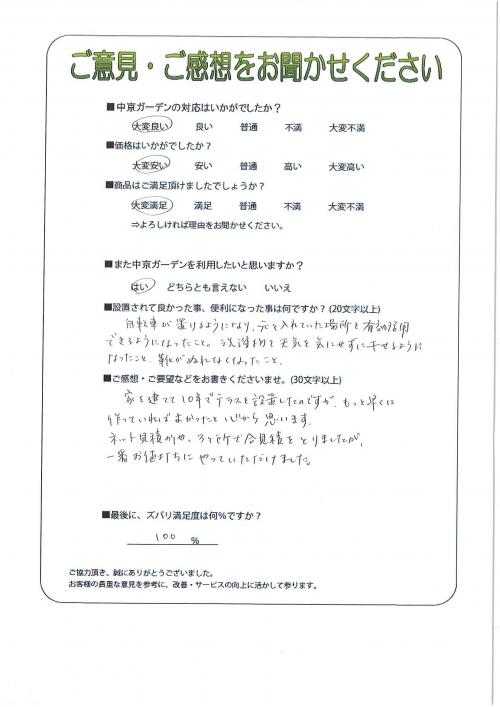 ご意見・ご感想をお聞かせください
■中京ガーデンの対応はいかがでしたか？
大変良い 良い 普通 不満 大変不満
■価格はいかがでしたか？
大変安い 安い 普通 高い 大変高い
■商品はご満足頂けましたでしょうか？
大変満足 満足 普通 不満 大変不満
⇒よろしければ理由をお聞かせください。
■また中京ガーデンを利用したいと思いますか？
はい どちらとも言えない いいえ
■設置されて良かった事、便利になった事は何ですか？(20文字以上)
自転車が置けるようになり、元々入れていた場所を有効活用
できるようになったこと。洗濯物を天気を気にせずに干せるように
なったこと、靴がぬれなくなったこと。
■ご感想・ご要望などをお書きくださいませ。(30文字以上)
家を建てて10年でテラスを設置したのですが、もっと早くに
作っていればよかったと心から思います。
ネット見積がや、3ヶ所で合見積をとりましたが、
一番お値打ちにやっていただけました。
■最後に、ズバリ満足度は何％ですか？
100 %
ご協力頂き、誠にありがとうございました。
お客様の貴重な意見を参考に、改善・サービスの向上に活かして参ります。